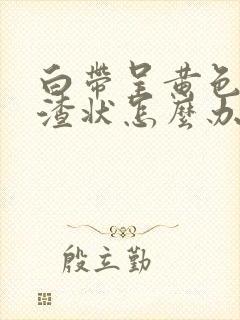 白帶呈黄色
渣状怎麼办
殷立勤